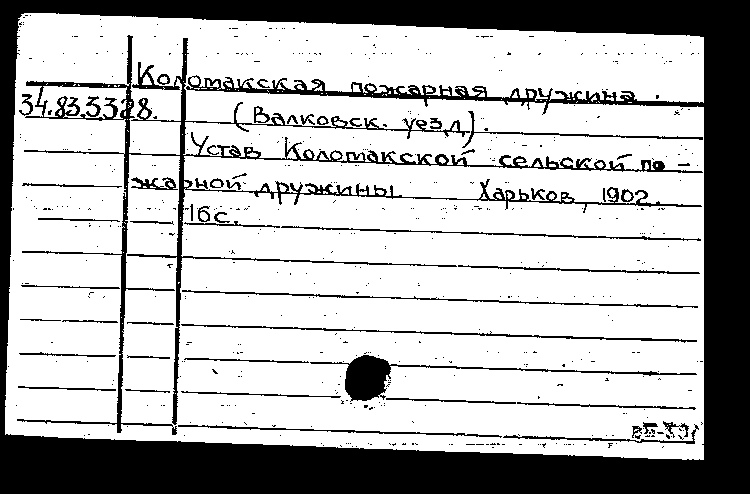 Коломакская пожарная дружина.
34.83.3328. (Валковск. уезд).
Устав Коломакской сельской по-
жарной дружины Харьков, 1902.
16 с.